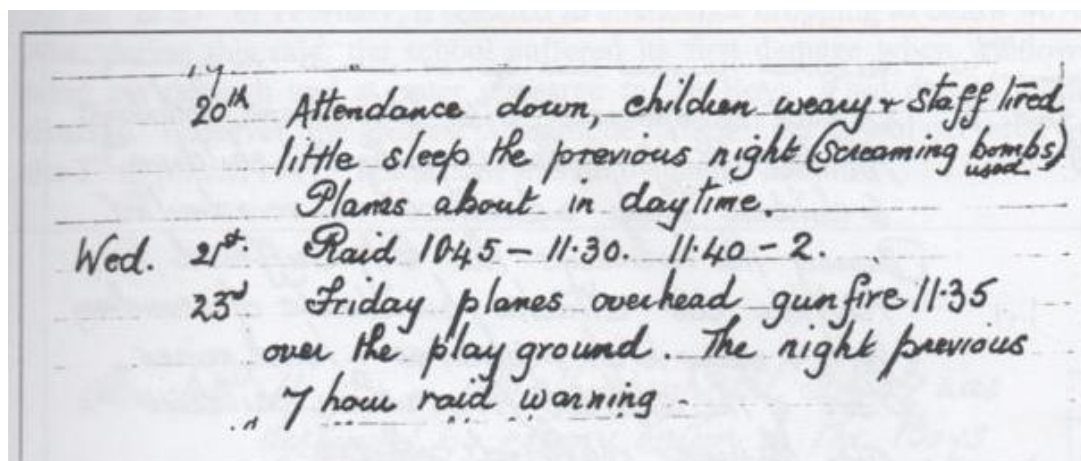 20th Attendance down, children weary & staff tired
little sleep the previous night (Screaming bombs)
used
Planes about in daytime.
Wed. 21st. Raid 10.45 – 11.30. 11.40 – 2.
23rd Friday planes overhead gunfire 11.35
over the playground. The night previous
7 hour raid warning